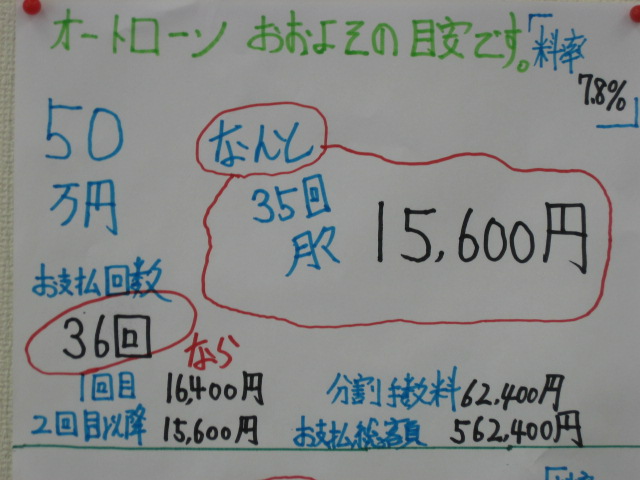 オートローン おおよその目安です。「料率
7.8%」
50
万円
なんと
35回
月々
15,600円
お支払回数
36回
なら
1回目 16,400円
2回目以降 15,600円
分割手数料 62,400円
お支払総額 562,400円